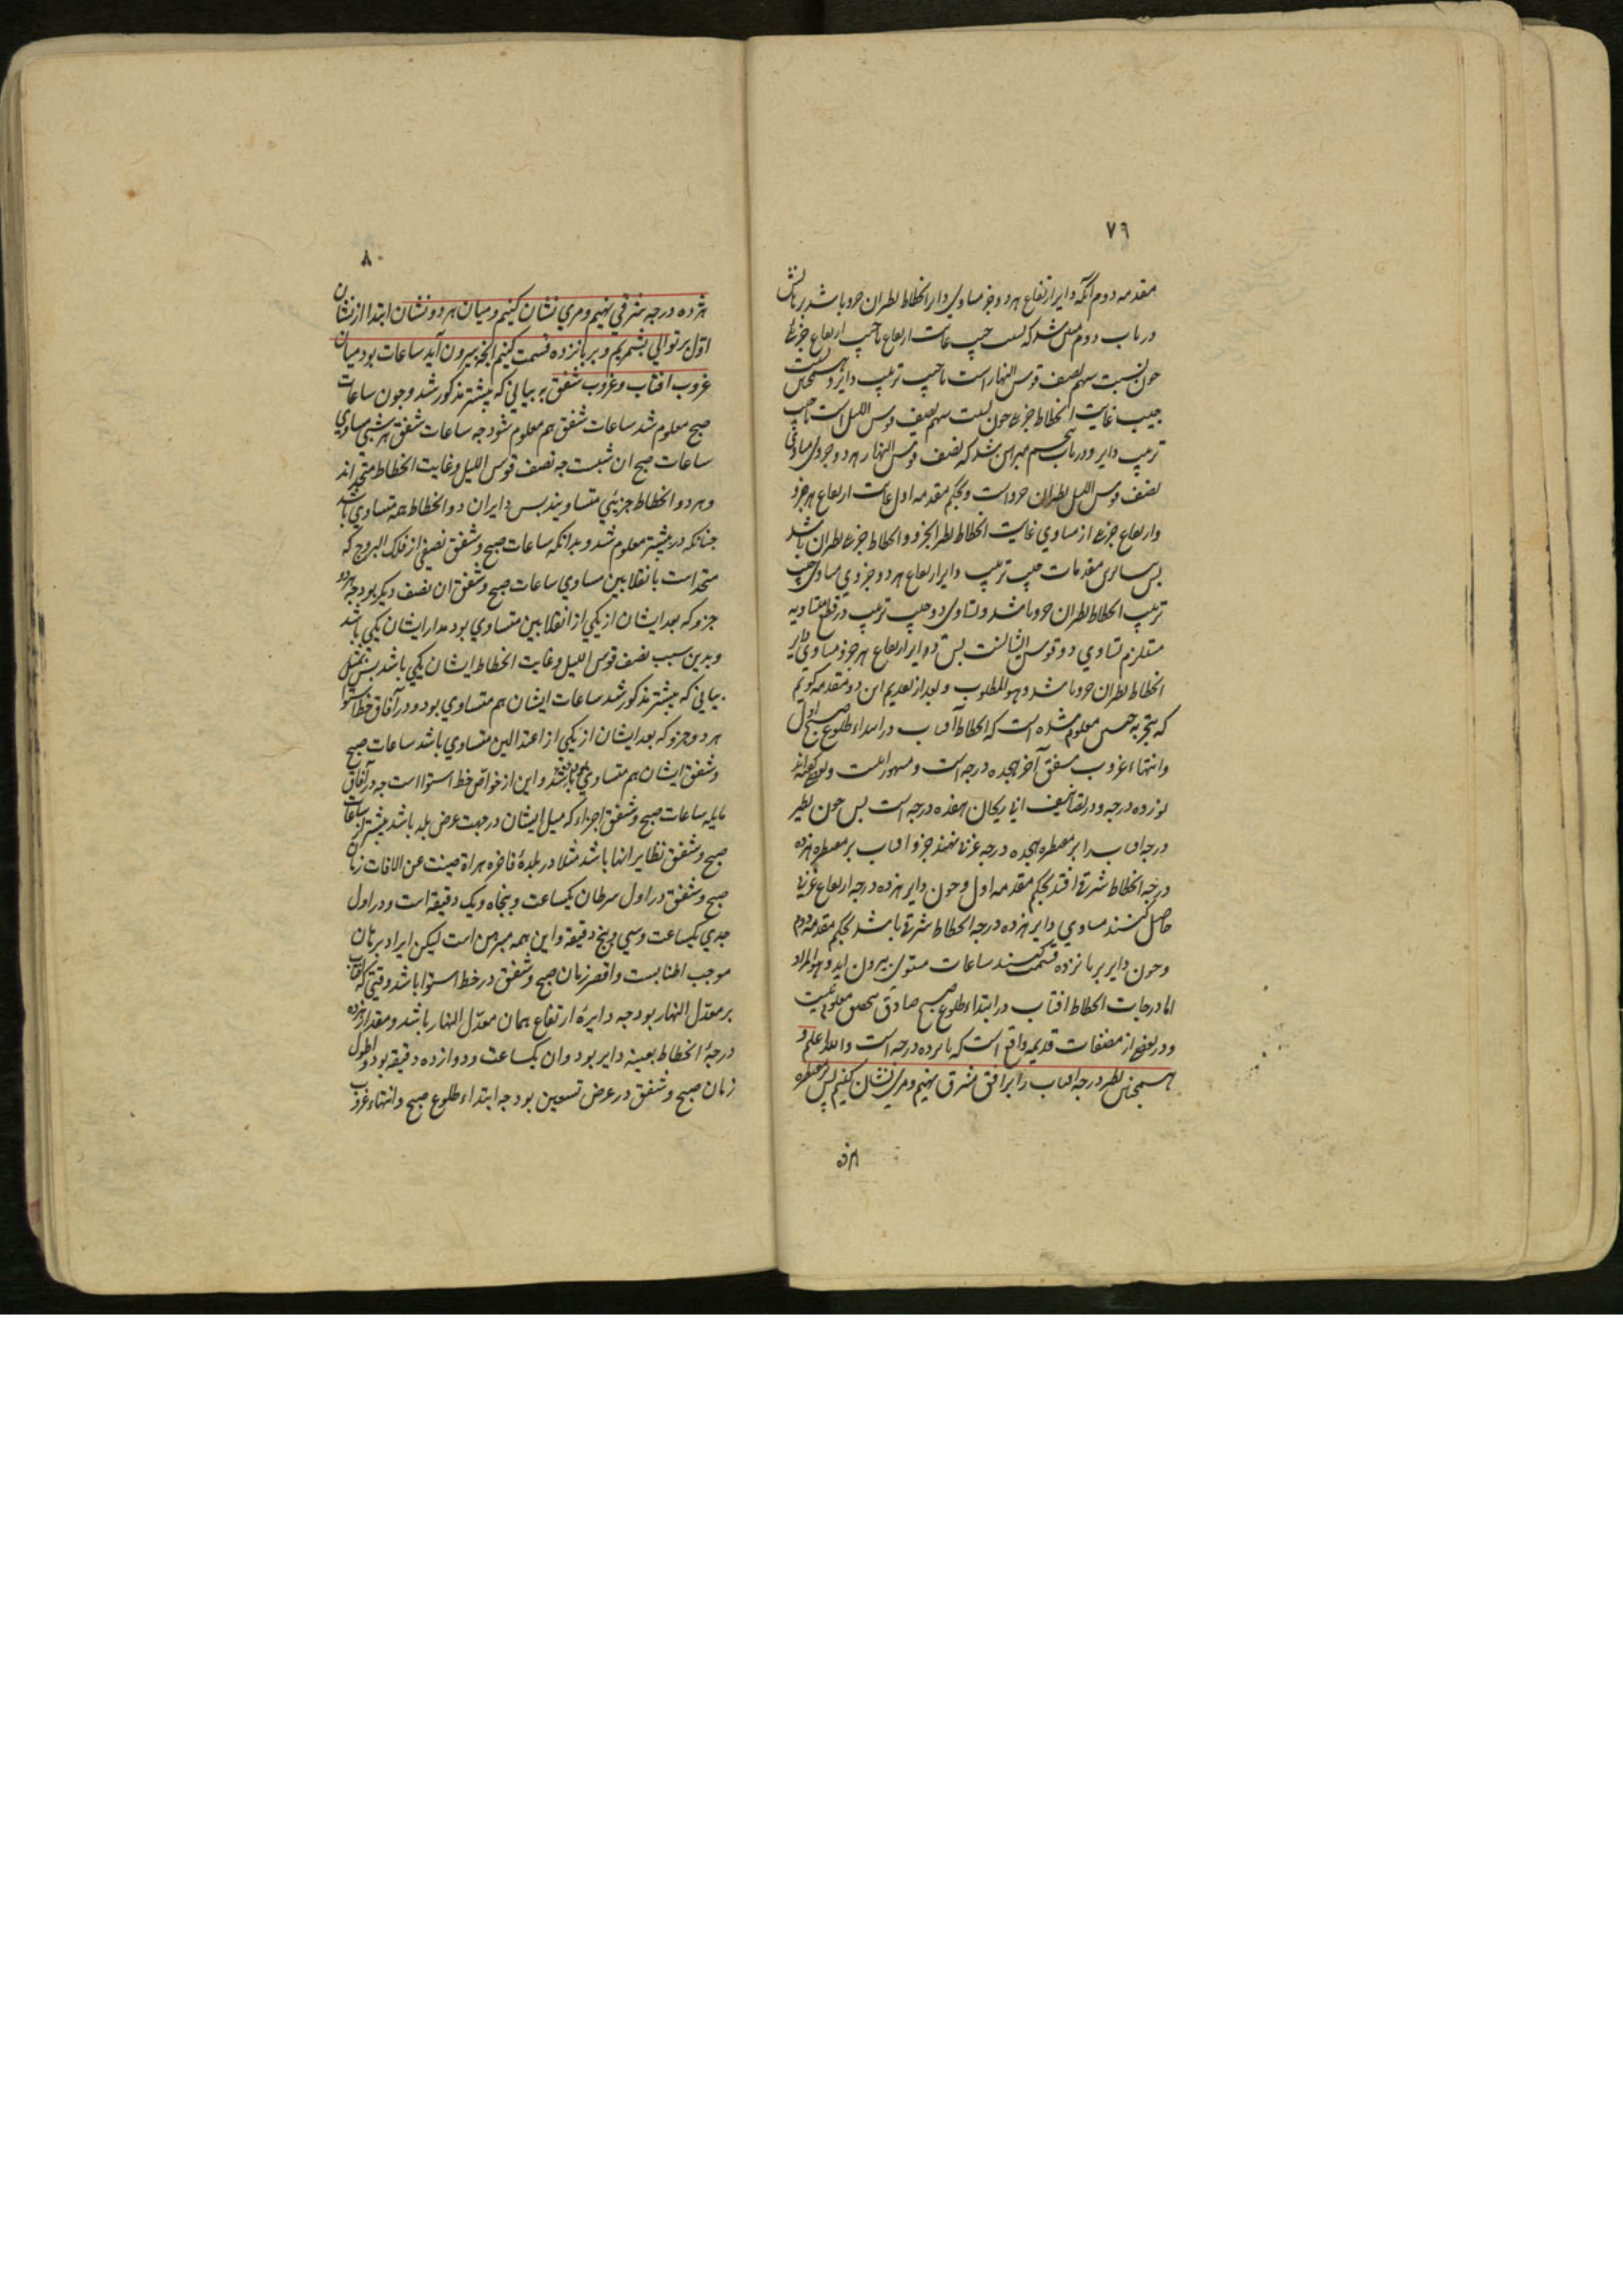 ٧٩
مقدمه دوم آنکه دایر ارتفاع هر دو جزو مساوی دایر انحطاط نظیران جزو باشد برهانش
در باب دوم شد که نسبت جیب غایت ارتفاع با جیب ارتفاع جزء
چون نسبت سهم نصف قوس النهار است با جیب ترتیب دایر و نسبت
جیب غایت انحطاط جزء چون نسبت سهم نصف قوس اللیل است با جیب
ترتیب دایر و در باب مبرهن شد که نصف قوس النهار هر دو جزوی مساوی
نصف قوس اللیل نظیران جزو است و بحکم مقدمه اول غایت ارتفاع هر جزو
وارتفاع جزء از مساوی غایت انحطاط نظیر الجزو و انحطاط جزء نظیران باشد
پس مقدمات جیب ترتیب دایر ارتفاع هر دو جزوی مساوی جیب
ترتیب انحطاط نظیران جزو باشد و تساوی دو جیب ترتیب در متساویه
مستلزم تساوی دو قوس ایشانست پس دایر ارتفاع هر جزو مساوی دایر
انحطاط نظیران جزو باشد وهو المطلوب و بعد از تقدیم این دو مقدمه گویم
که بتجربه معلوم شده است که انحطاط آفتاب در ابتداء طلوع صبح اول
وانتهاء غروب شفق آخر هجده درجه است و مشهور اینست و بعضی گفته‌اند
نوزده درجه و در تصانیف ابی ریحان هفده درجه است پس چون نظیر
درجه افتاب را بر مقنطره هجده درجه غربی نهند جزو افتاب بر مقنطره هژده
درجه انحطاط شرقی افتد بحکم مقدمه اول و چون دایر هژده درجه ارتفاع غربی
حاصل کنند مساوی دایر هژده درجه انحطاط شرقی باشد بحکم مقدمه دوم
وچون دایر بر پانزده قسمت کنند ساعات مستوی بیرون اید وهو المراد
اما درجات انحطاط افتاب در ابتداء طلوع صبح صادق معلوم نیست
ودر بعضی از مصنفات قدیمه واقع است که پانزده درجه است والله اعلم و
همچنین نظیر درجه افتاب را بر افق مشرق نهیم و مری نشان کنیم پس بر مقنطره
هژده
٨٠
هژده درجه شرقی نهیم و مری نشان کنیم و میان هر دو نشان ابتدا از نشان
اول بر توالی بشمریم و بر پانزده قسمت کنیم انچه بیرون آید ساعات بود میان
غروب افتاب و غروب شفق بر بیانی که پیشتر مذکور شد و چون ساعات
صبح معلوم شد ساعات شفق هم معلوم شود چه ساعات شفق هر شبی مساوی
ساعات صبح ان شبست چه نصف قوس اللیل و غایت انحطاط متحداند
وهر دو انحطاط جزیی متساویند پس دایران دو انحطاط همه متساوی باشد
چنانکه در پیشتر معلوم شد و بدانکه ساعات صبح و شفق نصفی از فلک البروج که
متحد است بانقلابین مساوی ساعات صبح و شفق ان نصف دیگر بود چه هر دو
جزو که بعد ایشان از یکی از انقلابین متساوی بود مدار ایشان یکی باشد
وبدین سبب نصف قوس اللیل و غایت انحطاط ایشان یکی باشد پس بمثل
بیانی که پیشتر مذکور شد ساعات ایشان هم متساوی بود و در آفاق خط استوا
هر دو جزو که بعد ایشان از یکی از اعتدالین متساوی باشد ساعات صبح
وشفق ایشان هم متساوی باشد و این از خواص خط استوا است چه در آفاق
مایله ساعات صبح و شفق اجزاء که میل ایشان در جهت عرض بلد باشد بیشتر از ساعات
صبح و شفق نظایر انها باشد مثلا در بلدهٔ فاخره هراة صینت عن الافات زمان
صبح و شفق در اول سرطان یکساعت و پنجاه و یک دقیقه است و در اول
جدی یکساعت و سی و پنج دقیقه و این همه مبرهن است لیکن ایراد برهان
موجب اطنابست و اقصر زمان صبح و شفق در خط استوا باشد وقتی که افتاب
بر معدل النهار بود چه دایرهٔ ارتفاع همان معدل النهار باشد و مقدار هژده
درجهٔ انحطاط بعینه دایر بود و ان یکساعت و دوازده دقیقه بود و اطول
زمان صبح و شفق در عرض تسعین بود چه ابتداء طلوع صبح وانتهاء غروب